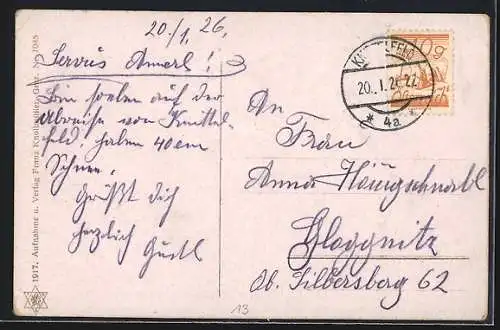 20./1. 26.
Servus Amerl!
Bin soeben auf der
Abreise von Knittel-
feld, haben 40 cm
Schnee.
Grüßt dich
herzlich Gustl
An
Frau
Anna
Gloggnitz
Ob. Silbersberg 62
KNITTELFELD
20. I. 26. 22
* 4a *
1917. Aufnahme u. Verlag Franz Knollmüller, Graz. No. 7085
13